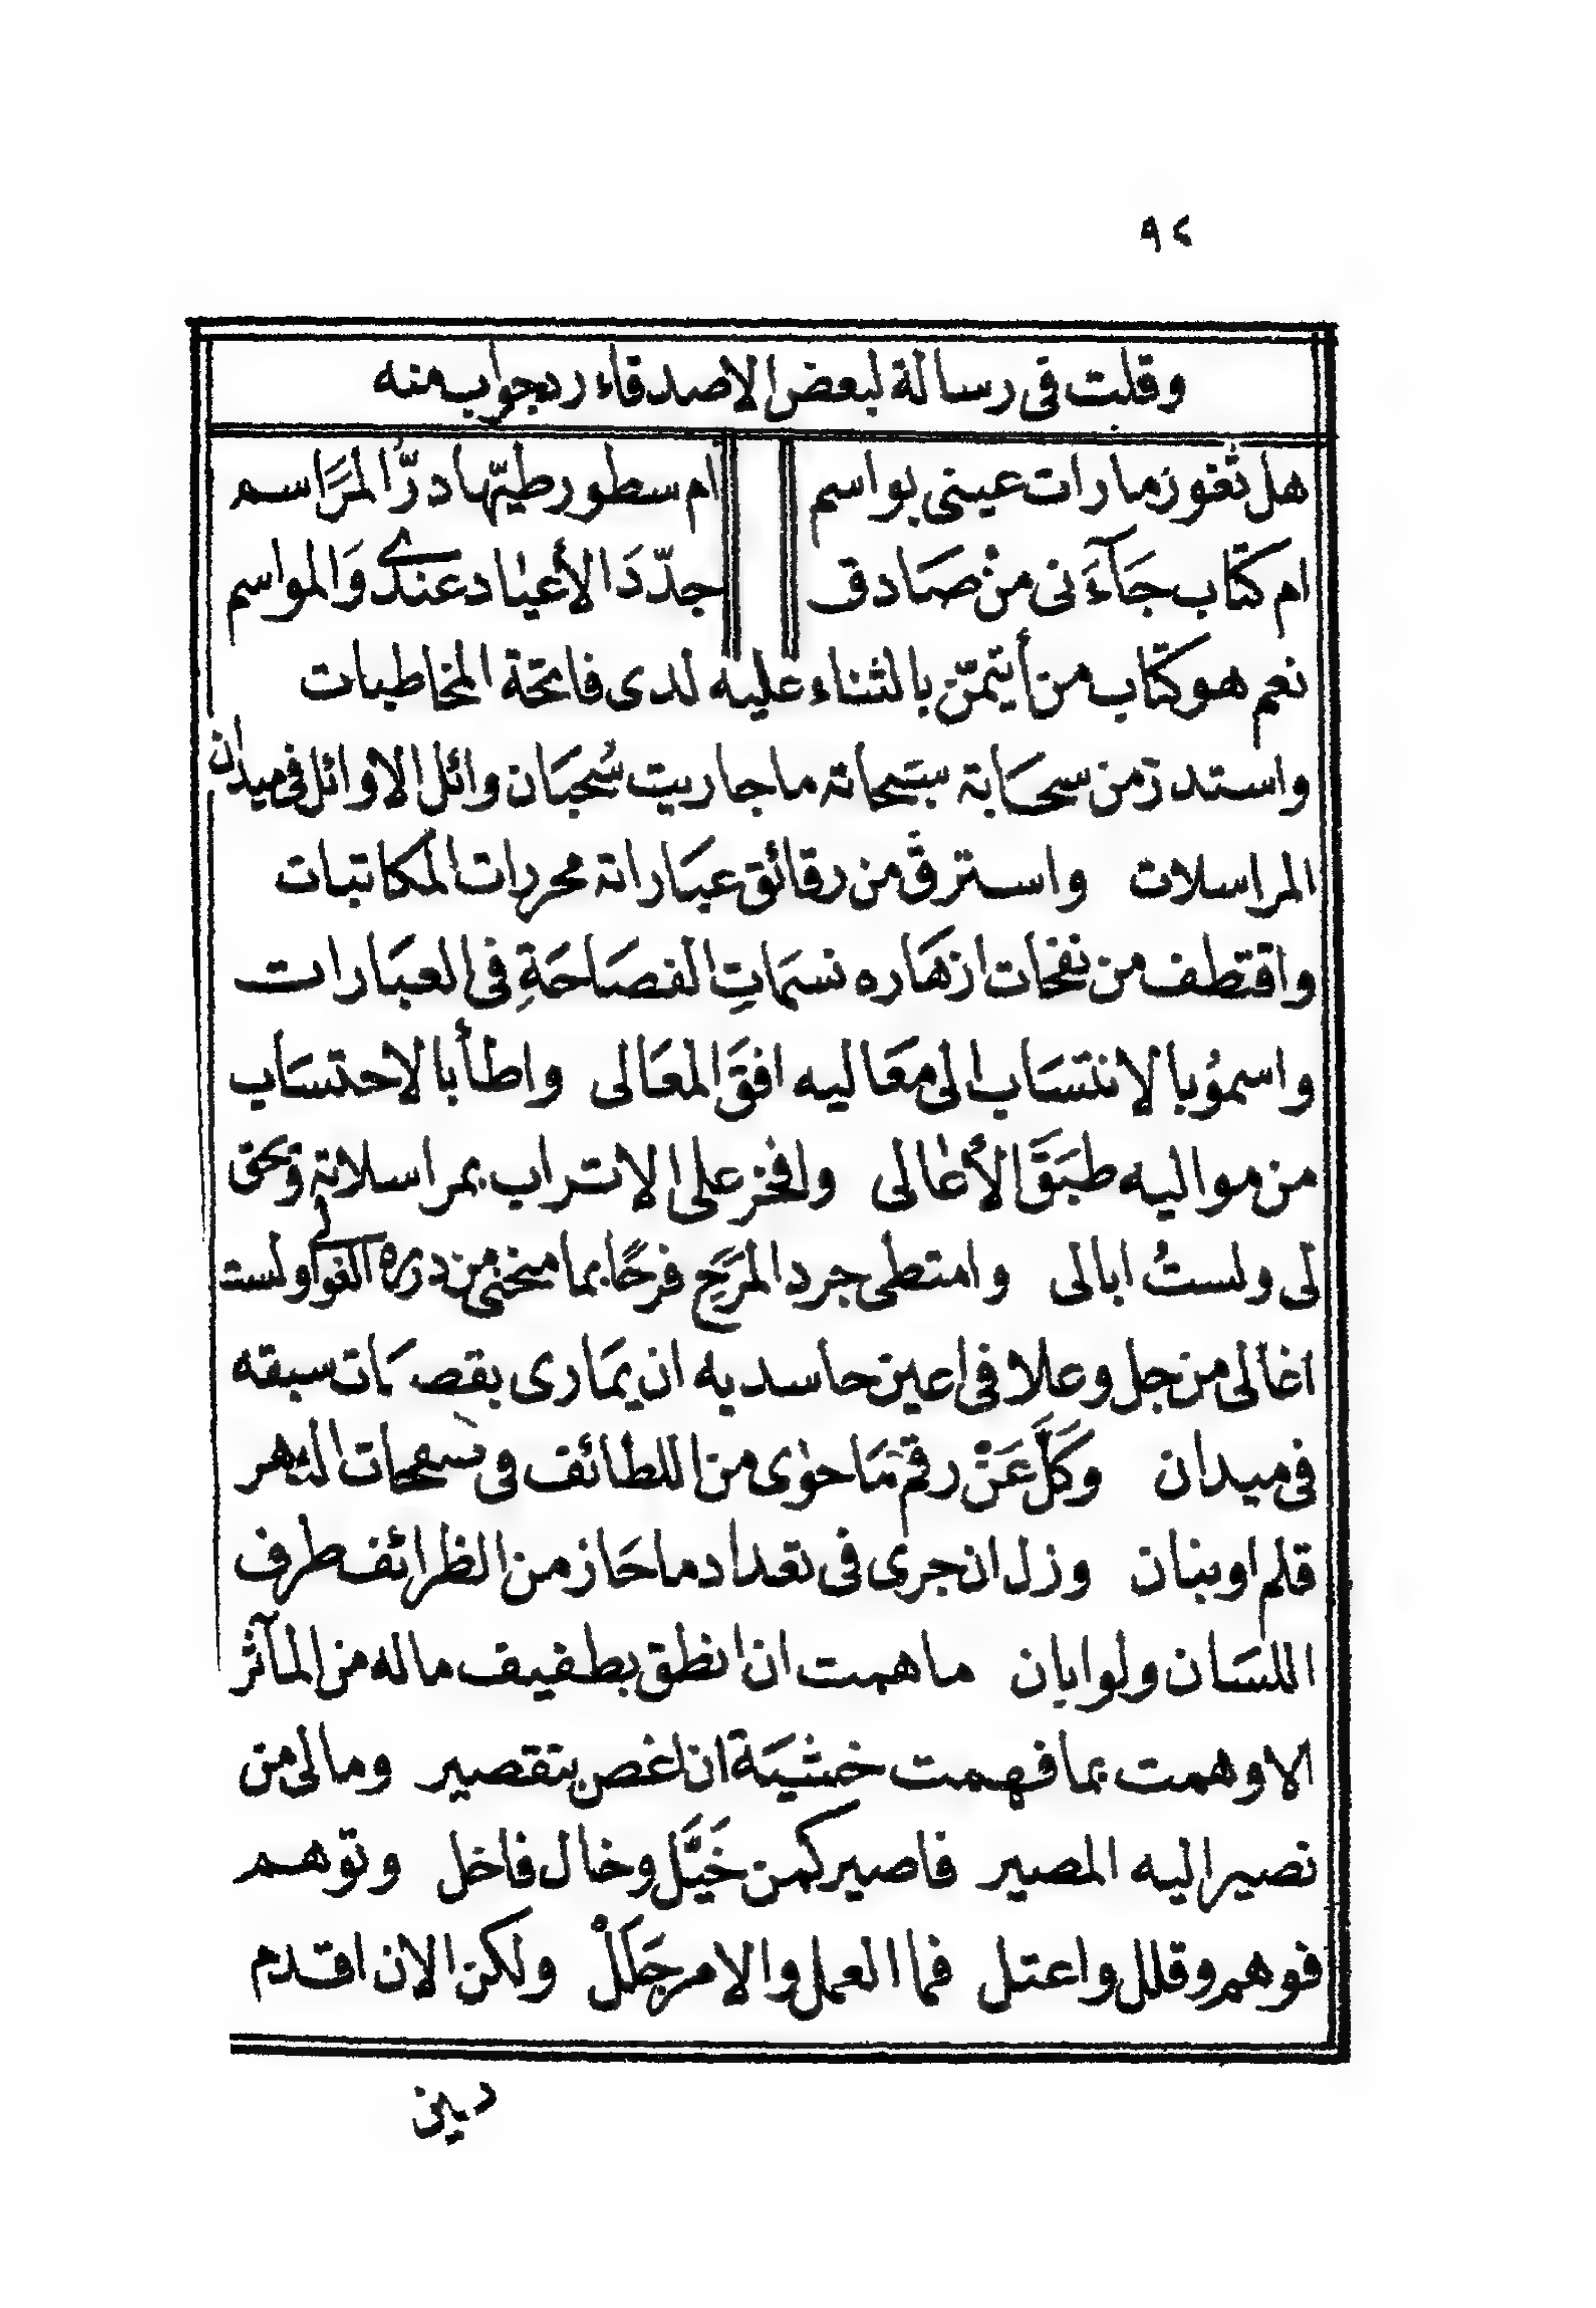 ٩٤
وقلت فى رسالة لبعض الاصدقاء رد جواب منه
هل ثغور ما رات عينى بواسم ام سطور طيّها درّ المرَاسم
ام كتاب جَآءَنى منْ صَادق جدّدَ الأعياد عندى وَالمواسم
نعم هو كتاب من أتيمّن بالثناء عليه لدى فاتحة المخاطبات
واستدر من سحَابة سَبحاته ما جاريت سُحبَان وائل الاوائل فى ميدان
المراسلات واسترق من رقائق عبَاراته محررات المكاتبات
واقتطف من نفحات ازهَاره نسمَاتِ الفصَاحَةِ فى العبَارات
واسموُ بالانتسَاب الى معَاليه افقَ المعَالى واطأ بالاحتسَاب
من مواليه طبَقَ الأعالى وافخر على الاتراب بمراسلاته وَيحق
لى ولستُ ابالى وامتطى جرد المرَحِ فرحًا بما منحنى من درره الغوالى ولست
اغالى من جل وعلا فى اعين حاسديه ان يمَارى بقصبَات سبقه
فى ميدان وَكَلَّ عَنْ رقم مَا حوى من اللطائف فى صفحات الدهر
قلم او بنان وزل ان جرى فى تعداد ما حَاز من الظرائف طرف
اللسَان ولو ابان ما همت ان انطق بطفيف ما له من المآثر
الا وهمت بما فهمت خشيَة ان اغص بتقصير وما لى من
نصير اليه المصير فاصير كمن خَيَّل وخال فاخل وتوهم
فوهم وقلل واعتل فما العمل والامر جَلَلْ ولكن الان اقدم
دينى